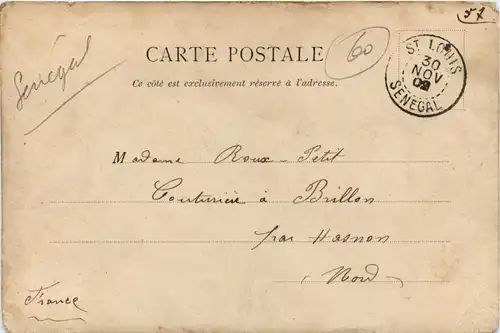 57
Sénégal
60
CARTE POSTALE
Ce côté est exclusivement réservé à l'adresse.
ST LOUIS
30
NOV
02
SENEGAL
Madame Roux-Petit
Couturière à Brillon
par Hasnon
Nord
France